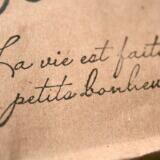 La vie est faite
petits bonheu